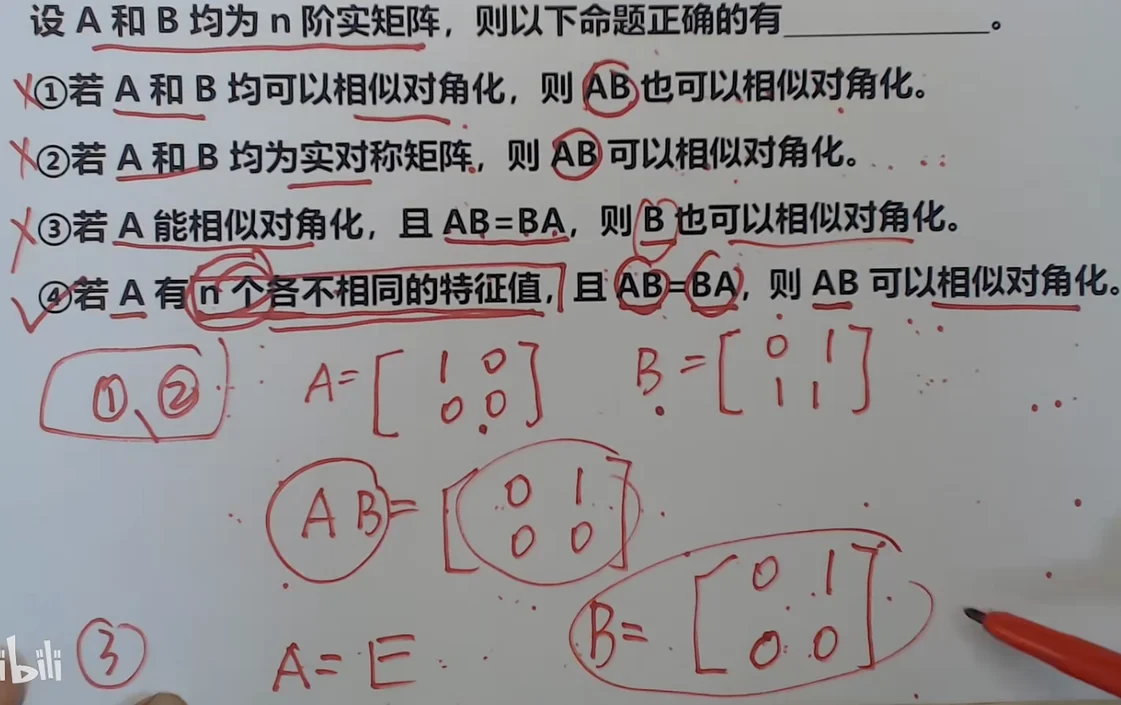 设 A 和 B 均为 n 阶实矩阵，则以下命题正确的有____________。
×①若 A 和 B 均可以相似对角化，则 AB 也可以相似对角化。
×②若 A 和 B 均为实对称矩阵，则 AB 可以相似对角化。
×③若 A 能相似对角化，且 AB=BA，则 B 也可以相似对角化。
✓④若 A 有 n 个各不相同的特征值，且 AB=BA，则 AB 可以相似对角化。
①、② A= [ 1 0 B= [ 0 1
0 0 ] 1 1 ]
AB= [ 0 1
0 0 ]
③ A=E B= [ 0 1
0 0 ]
ibili